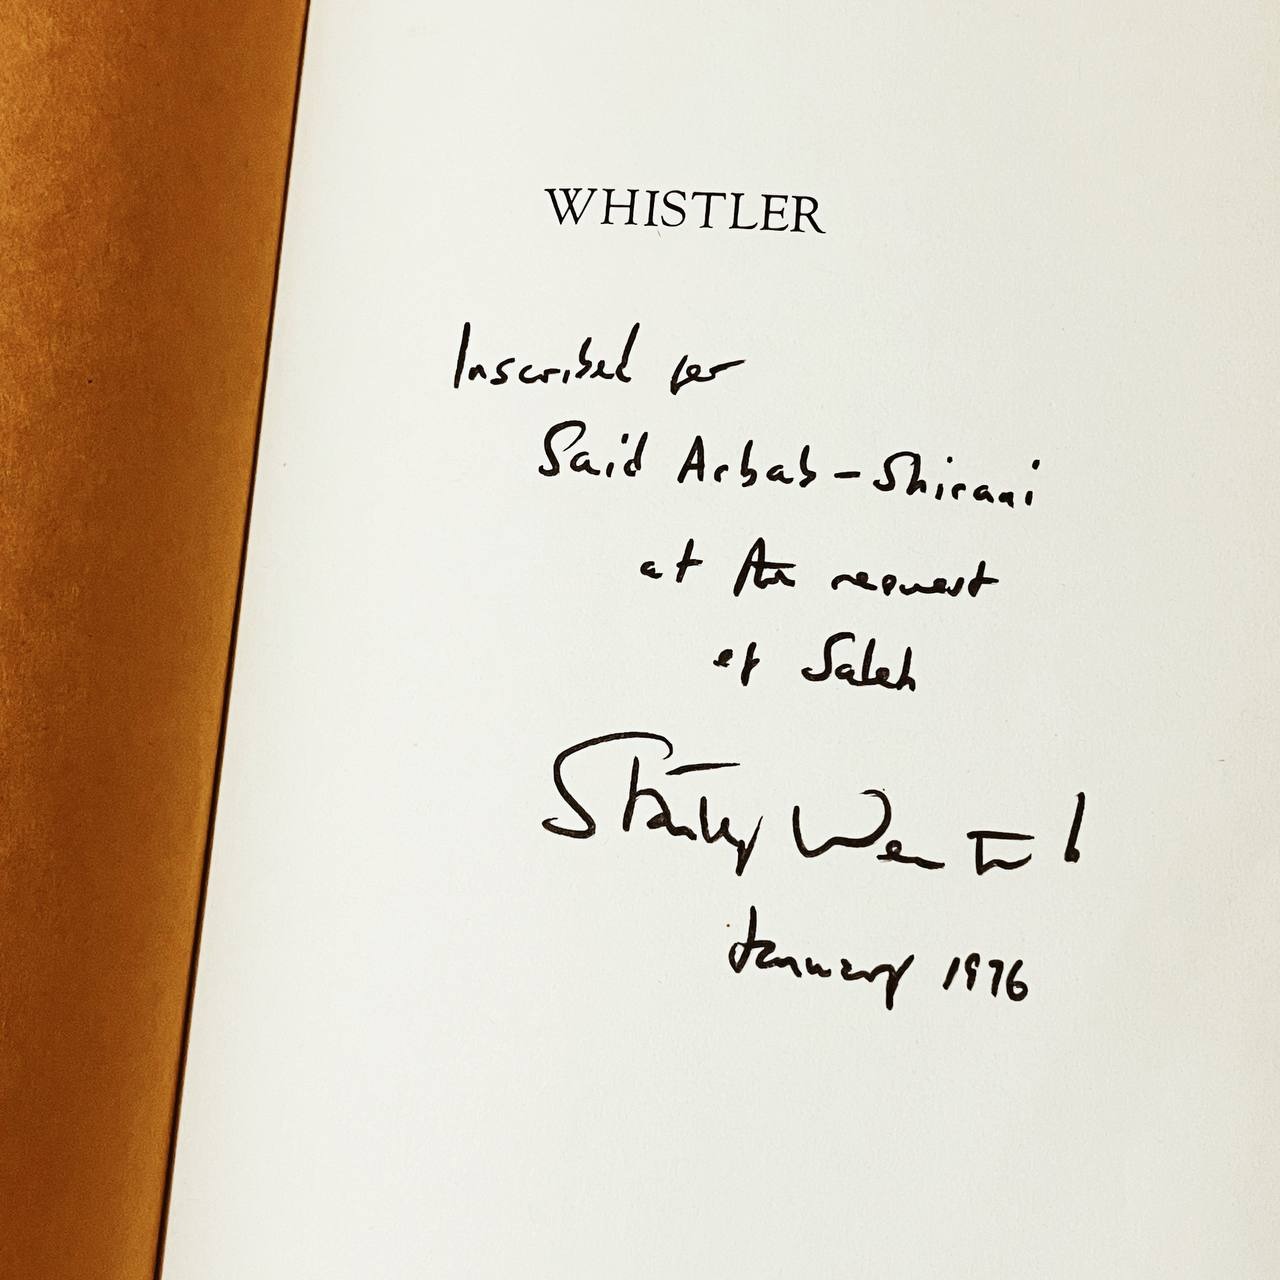 WHISTLER
Inscribed for
Said Arbab-Shirani
at the request
of Saleh
Stanley Weintraub
January 1976